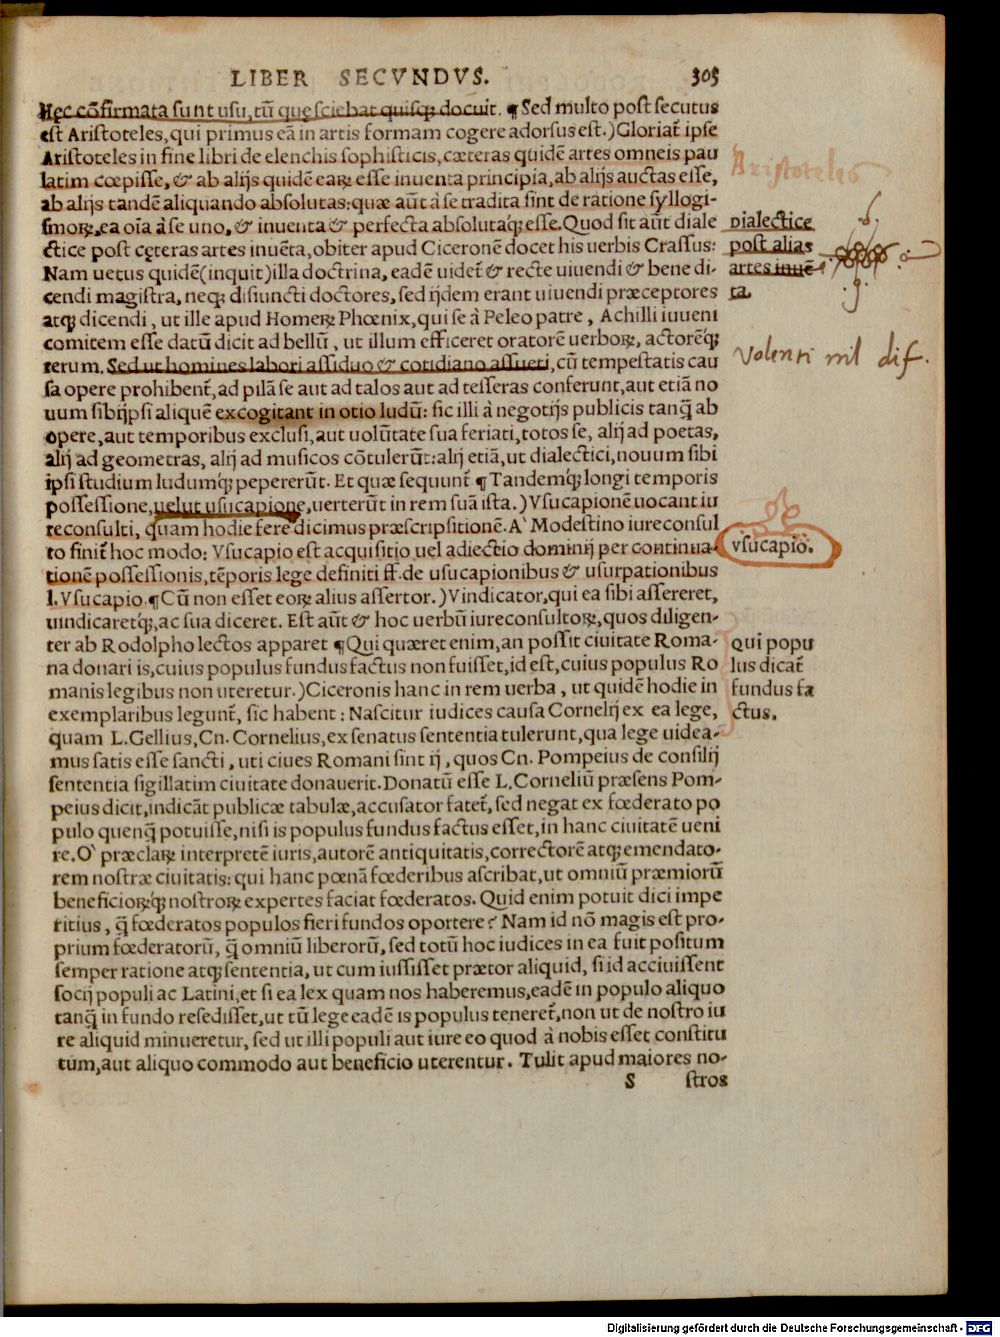 LIBER SECVNDVS. 305
Hęc cōfirmata sunt usu, tū que sciebat quisq́; docuit. ¶ Sed multo post secutus
est Aristoteles, qui primus eā in artis formam cogere adorsus est.) Gloriat̄ ipse
Aristoteles in fine libri de elenchis sophisticis, cæteras quidē artes omneis pau
latim cœpisse, & ab alijs quidē earꝝ esse inuenta principia, ab alijs auctas esse,
ab alijs tandē aliquando absolutas: quæ aūt à se tradita sint de ratione syllogi-
smorꝝ, ea oīa à se uno, & inuenta & perfecta absolutaq́; esse. Quod sit aūt diale
ctice post cęteras artes inuēta, obiter apud Ciceronē docet his uerbis Crassus:
Nam uetus quidē (inquit) illa doctrina, eadē uidet̄ & recte uiuendi & bene di-
cendi magistra, neq; disiuncti doctores, sed ijdem erant uiuendi præceptores
atq; dicendi, ut ille apud Homerꝝ Phœnix, qui se à Peleo patre, Achilli iuueni
comitem esse datū dicit ad bellū, ut illum efficeret oratorē uerborꝝ, actorēq́;
rerum. Sed ut homines labori assiduo & cotidiano assueti, cū tempestatis cau
sa opere prohibent̄, ad pilā se aut ad talos aut ad tesseras conferunt, aut etiā no
uum sibijpsi aliquē excogitant in otio ludū: sic illi à negotijs publicis tanq̄ ab
opere, aut temporibus exclusi, aut uolūtate sua feriati, totos se, alij ad poetas,
alij ad geometras, alij ad musicos cōtulerūt: alij etiā, ut dialectici, nouum sibi
ipsi studium ludumq́; pepererūt. Et quæ sequunt̄ ¶ Tandemq́; longi temporis
possessione, uelut usucapione, uerterūt in rem suā ista.) Vsucapionē uocant iu
reconsulti, quam hodie fere dicimus præscripsitionē. A` Modestino iureconsul
to finit̄ hoc modo: Vsucapio est acquisitio uel adiectio dominij per continua-
tionē possessionis, tēporis lege definiti ff. de usucapionibus & usurpationibus
l. Vsucapio. ¶ Cū non esset eorꝝ alius assertor.) Vindicator, qui ea sibi assereret,
uindicaretq́;, ac sua diceret. Est aūt & hoc uerbū iureconsultorꝝ, quos diligen-
ter ab Rodolpho lectos apparet ¶ Qui quæret enim, an possit ciuitate Roma-
na donari is, cuius populus fundus factus non fuisset, id est, cuius populus Ro
manis legibus non uteretur.) Ciceronis hanc in rem uerba, ut quidē hodie in
exemplaribus legunt̄, sic habent: Nascitur iudices causa Cornelij ex ea lege,
quam L. Gellius, Cn. Cornelius, ex senatus sententia tulerunt, qua lege uidea-
mus satis esse sancti, uti ciues Romani sint ij, quos Cn. Pompeius de consilij
sententia sigillatim ciuitate donauerit. Donatū esse L. Corneliū præsens Pom-
peius dicit, indicāt publicæ tabulæ, accusator fatet̄, sed negat ex fœderato po
pulo quenq̄ potuisse, nisi is populus fundus factus esset, in hanc ciuitatē ueni
re. O` præclarꝝ interpretē iuris, autorē antiquitatis, correctorē atq; emendato-
rem nostræ ciuitatis: qui hanc pœnā fœderibus ascribat, ut omniū præmiorū
beneficiorꝝq́; nostrorꝝ expertes faciat fœderatos. Quid enim potuit dici impe
ritius, q̄ fœderatos populos fieri fundos oportere? Nam id nō magis est pro-
prium fœderatorū, q̄ omniū liberorū, sed totū hoc iudices in ea fuit positum
semper ratione atq; sententia, ut cum iussisset prætor aliquid, si id acciuissent
socij populi ac Latini, et si ea lex quam nos haberemus, eadē in populo aliquo
tanq̄ in fundo resedisset, ut tū lege eadē is populus teneret̄, non ut de nostro iu
re aliquid minueretur, sed ut illi populi aut iure eo quod à nobis esset constitu
tum, aut aliquo commodo aut beneficio uterentur. Tulit apud maiores no-
S stros
Aristoteles
Dialectice
post alias
artes inuē
ta.
Volenti nil dif.
vsucapio.
qui popu
lus dicat̄
fundus fa
ctus.
Digitalisierung gefördert durch die Deutsche Forschungsgemeinschaft - DFG